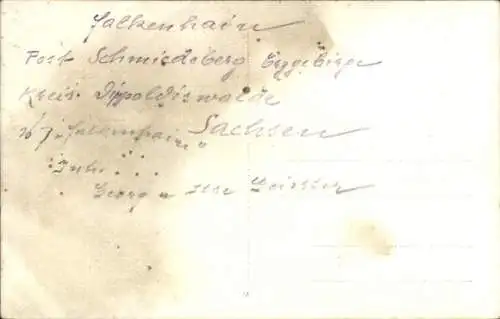 Falkenhain
Post Schmiedeberg Erzgebirge
Kreis. Dippoldiswalde
"Falkenhain" Sachsen
Inh:
Georg u Else